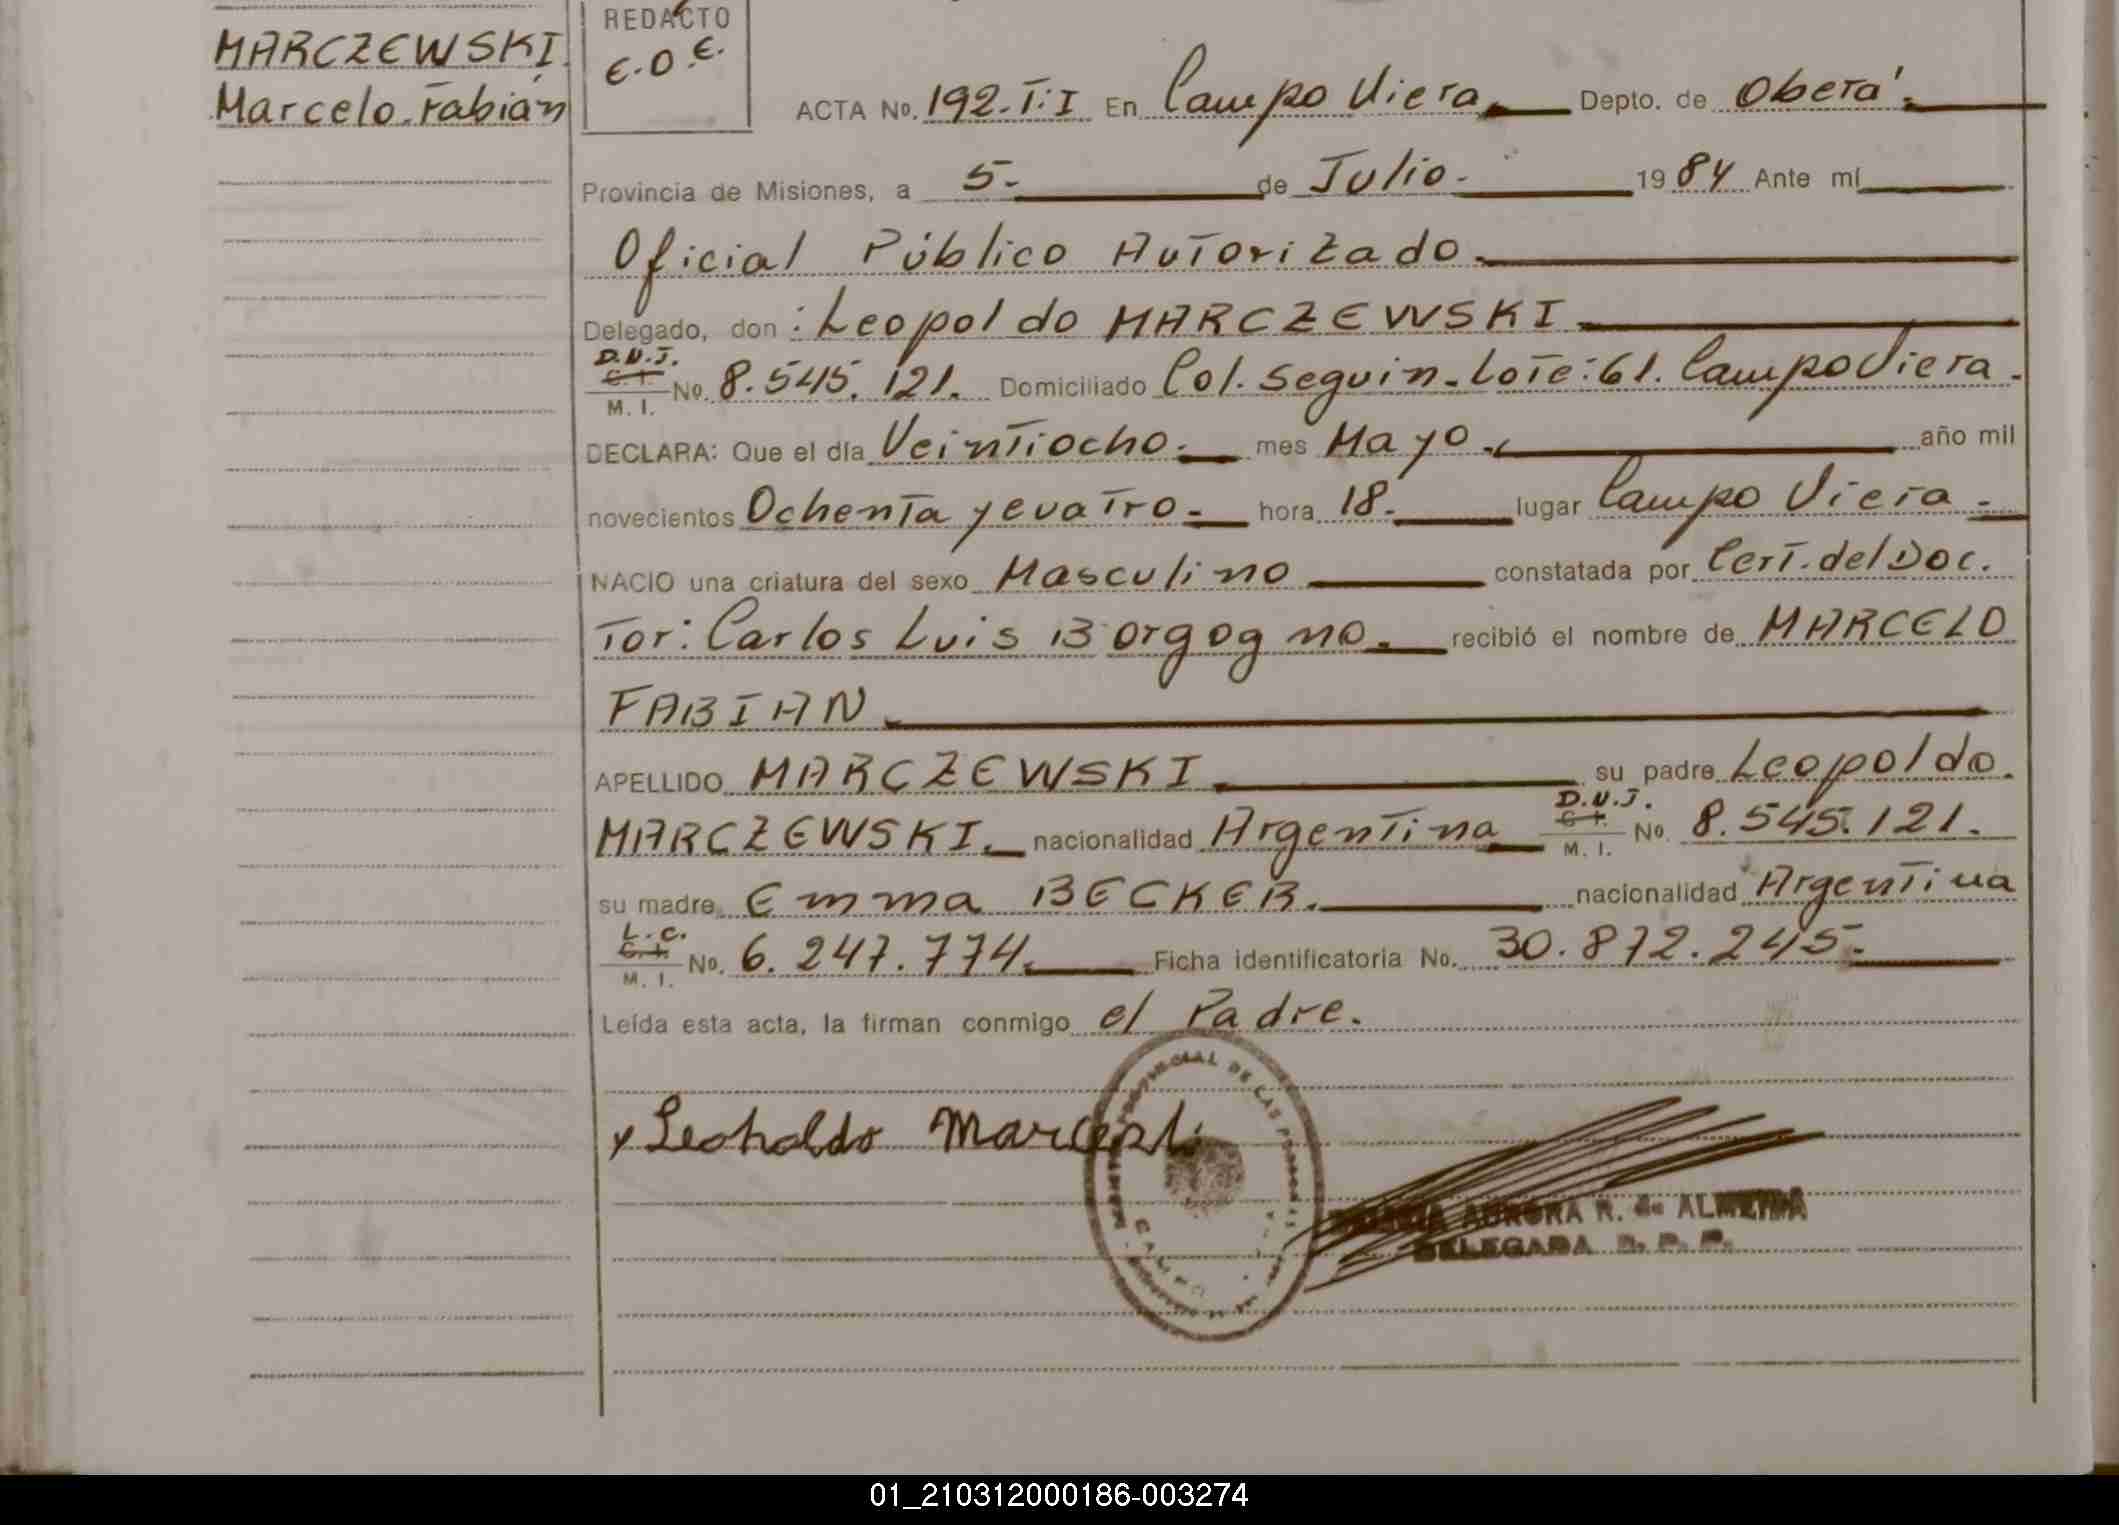 MARCZEWSKI.
Marcelo Fabián
REDACTO
E.O.E.
ACTA No. 192.T:I En Campo Viera. Depto. de Oberá.
Provincia de Misiones, a 5. de Julio. 1984 Ante mí
Oficial Público Autorizado.
Delegado, don: Leopoldo MARCZEWSKI.
D.N.I.
C.I.
M.I. No. 8.545.121. Domiciliado Col. Seguin. Lote:61. Campo Viera.
DECLARA: Que el día Veintiocho. mes Mayo. año mil
novecientos Ochenta y cuatro. hora 18. lugar Campo Viera.
NACIO una criatura del sexo Masculino constatada por Cert. del Doc.
tor: Carlos Luis Borgogno. recibió el nombre de MARCELO
FABIAN
APELLIDO MARCZEWSKI su padre Leopoldo
D.N.I.
C.I.
MARCZEWSKI. nacionalidad Argentina M.I. No. 8.545.121.
su madre Emma BECKER. nacionalidad Argentina
L.C.
C.I.
M.I. No. 6.247.774. Ficha identificatoria No. 30.872.245.
Leída esta acta, la firman conmigo el Padre.
x Leopoldo
AURORA R. de ALMEIDA
DELEGADA R. P. P.
01_210312000186-003274